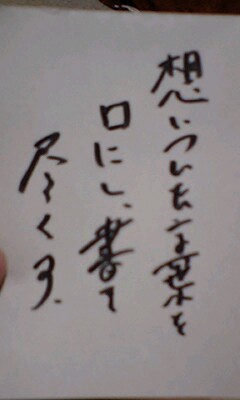 想いついた言葉を
口にし、書て
尽くす.